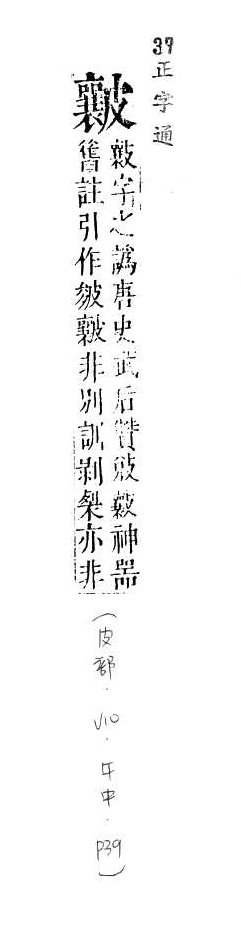 37
正字通
字之譌唐史武后贊神器
舊註引作非別訓剝亦非
(皮部．V10．午中．P39)